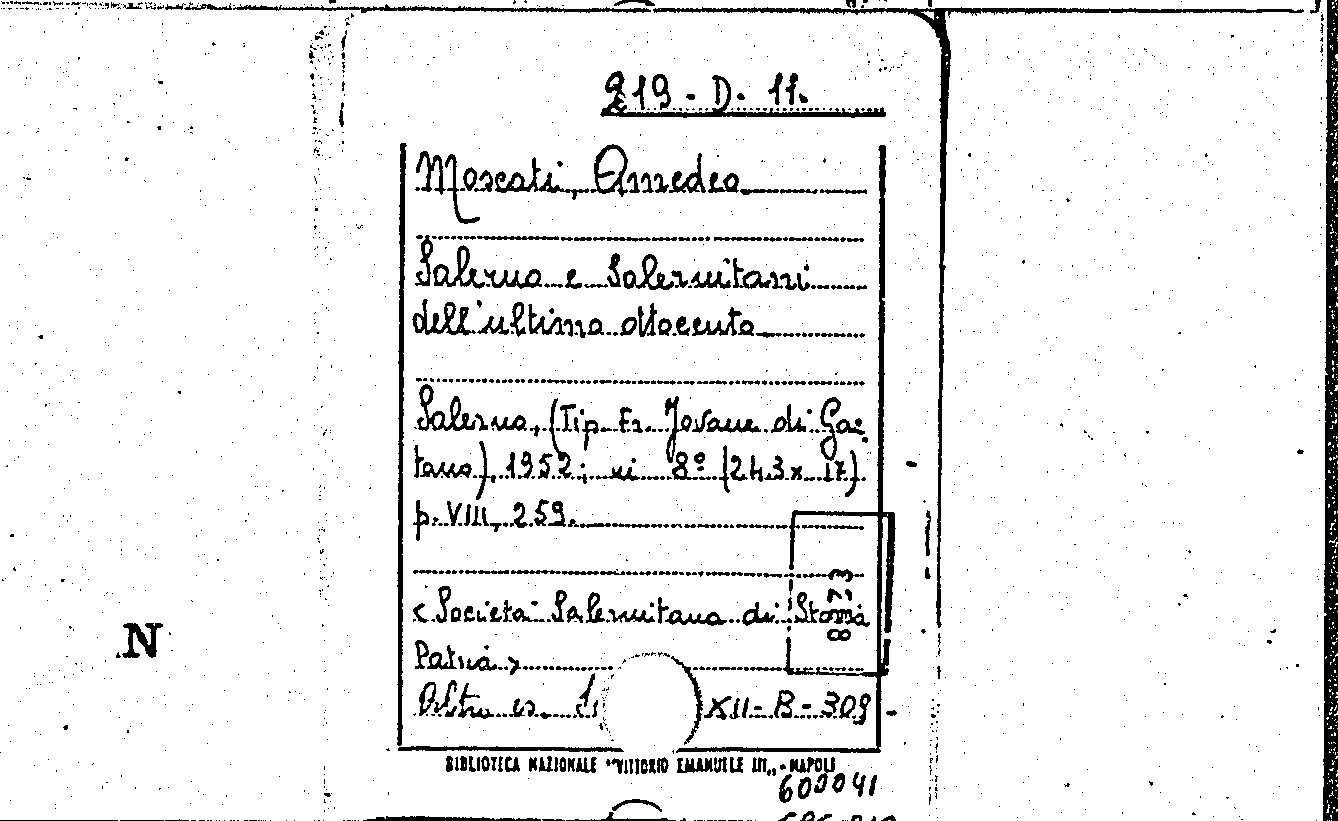 219 - D. 11.
Moscati, Amedeo
Salerno e Salernitani
dell'ultimo ottocento
Salerno, (Tip. Fr. Jovane di Gae
tano), 1952; in 8º (24.3x 17)
p. VIII, 259.
873
< Società Salernitana di Storia
Patria >
N
Altro es. XII - B - 309
BIBLIOTECA NAZIONALE "VITTORIO EMANUELE III„ - NAPOLI
600041